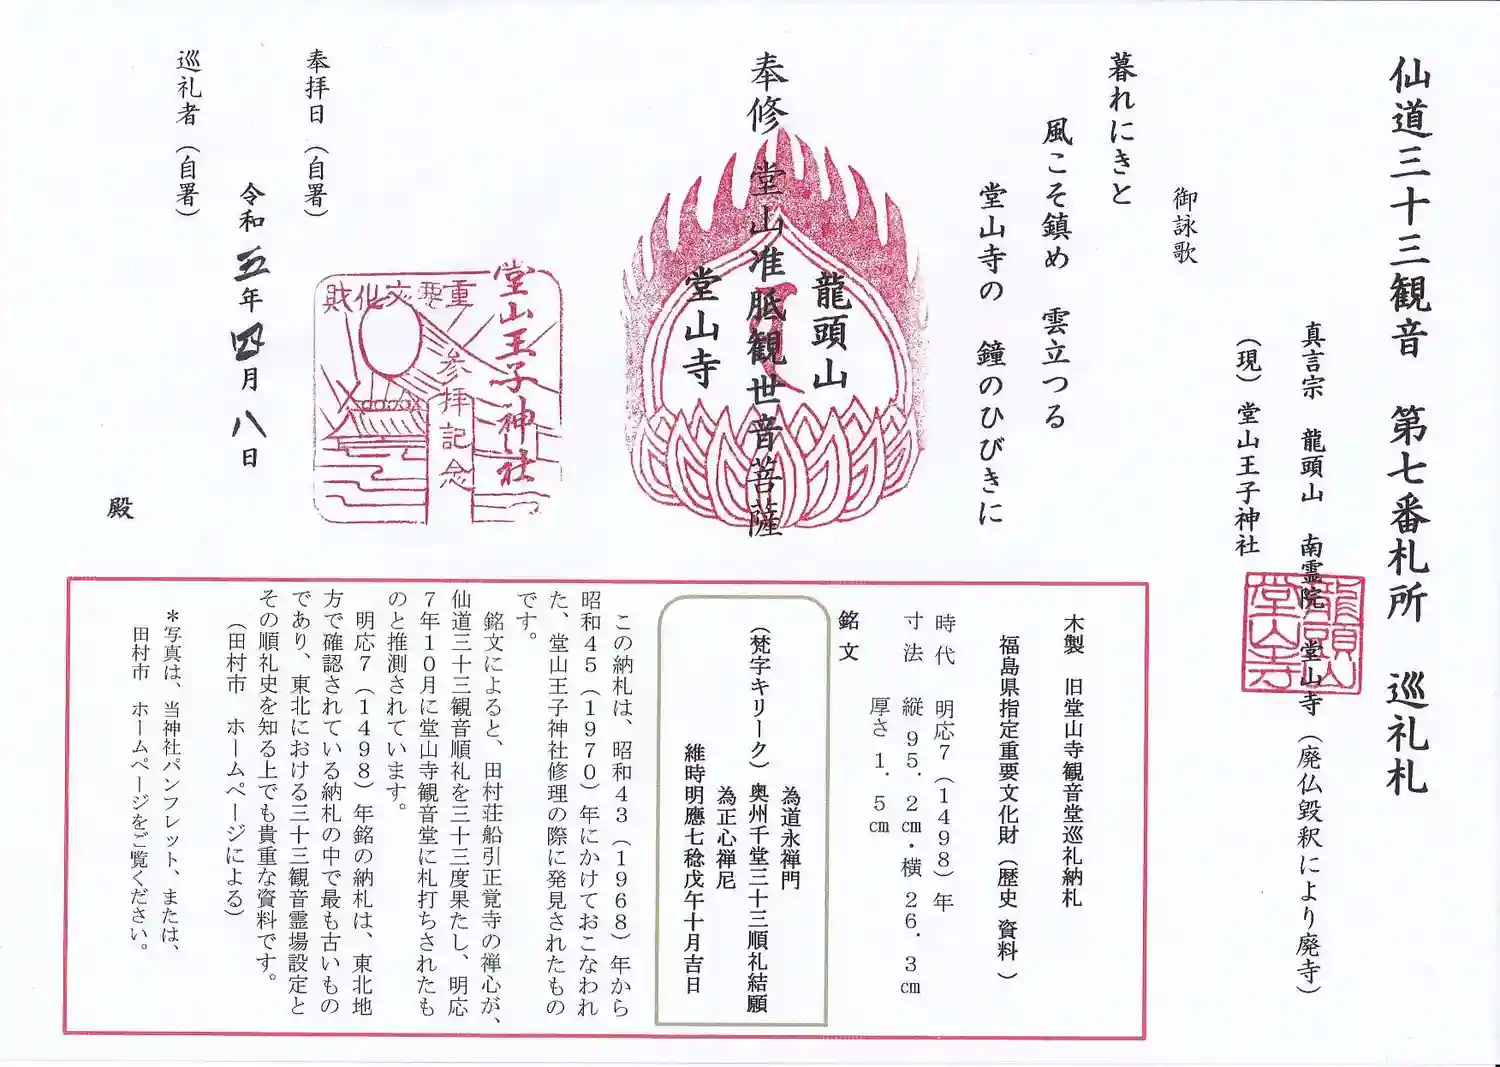 仙道三十三観音　第七番札所　巡礼札
真言宗　龍頭山　南霊院　堂山寺（廃仏毀釈により廃寺）
（現）堂山王子神社
龍頭山
堂山寺
御詠歌
暮れにきと
風こそ鎮め　雲立つる
堂山寺の　鐘のひびきに
奉修　堂山准胝観世音菩薩
龍頭山
堂山寺
奉拝日（自署）
令和五年四月八日
巡礼者（自署）
殿
堂山王子神社
重要文化財
参拝記念
木製　旧堂山寺観音堂巡礼納札
福島県指定重要文化財（歴史 資料）
時代　明応７（１４９８）年
寸法　縦 ９５．２㎝・横 ２６．３㎝
厚さ １．５㎝
銘文
為道永禅門
（梵字キリーク）奥州千堂三十三順礼結願
為正心禅尼
維時明應七稔戊午十月吉日
この納札は、昭和４３（１９６８）年から
昭和４５（１９７０）年にかけておこなわれ
た、堂山王子神社修理の際に発見されたもの
です。
銘文によると、田村荘船引正覚寺の禅心が、
仙道三十三観音順礼を三十三度果たし、明応
７年１０月に堂山寺観音堂に札打ちされたも
のと推測されています。
明応７（１４９８）年銘の納札は、東北地
方で確認されている納札の中で最も古いもの
であり、東北における三十三観音霊場設定と
その順礼史を知る上でも貴重な資料です。
（田村市　ホームページによる）
＊写真は、当神社パンフレット、または、
田村市　ホームページをご覧ください。